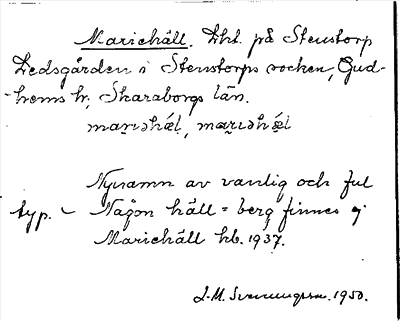 Mariehäll. Lht. på Stenstorp
Ledsgården i Stenstorps socken, Gud-
hems hr, Skaraborgs län.
marıəhæl, marıəhæl
Nynamn av vanlig och ful
typ. – Någon häll = berg finnes ej
Mariehäll kb. 1937.
1950.